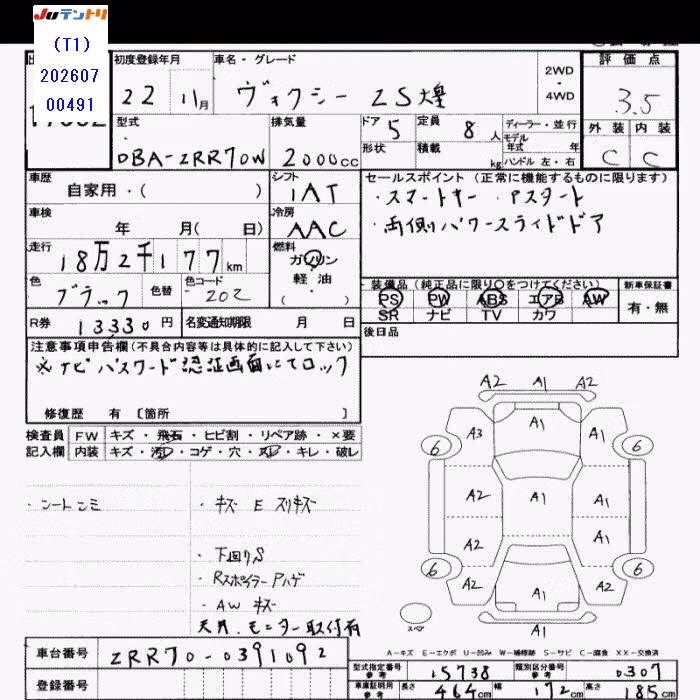 JUテントリ
(T1)
202607
00491
初度登録年月
22 11月
車名・グレード
ヴォクシー ZS煌
2WD
・
4WD
評価点
3.5
外装 内装
C C
型式
DBA-ZRR70W
排気量
2000cc
ドア 5
定員 8人
形状
積載 kg
ディーラー・並行
モデル年式 年
ハンドル 左・右
車歴
自家用・( )
シフト
IAT
セールスポイント (正常に機能するものに限ります)
・スマートキー ・Pスタート
・両側パワースライドドア
車検
年 月( 日)
冷房
AAC
走行
18万2千177km
燃料
ガソリン
軽油
・( )
色
ブラック
色替
色コード
202
装備品 (純正品に限り〇をつけてください)
PS PW ABS エアB AW
SR ナビ TV カワ
新車保証書
有・無
R券 13330円
名変通知期限 月 日
後日品
注意事項申告欄 (不具合内容等は具体的に記入して下さい)
※ナビパスワード認証画面にてロック
修復歴 有 〔箇所 〕
検査員記入欄
FW キズ・飛石・ヒビ割・リペア跡・×要
内装 キズ・汚レ・コゲ・穴・スレ・キレ・破レ
・シートシミ
・キズ E スリキズ
・下回りS
・Rスポイラー Pハゲ
・AW キズ
天井.モニター取付有
A2 A1 A2
A3 A1 A1
6 6
A2 A1 A1
A2 A1
6 6
A2 A1 A2
A1
スペア
A-キズ E-エクボ U-凹み W-補修跡 S-サビ C-腐食 XX-交換済
車台番号 ZRR70-0391092
登録番号
型式指定番号 参考 15738
類別区分番号 参考 0307
車庫証明用 参考 長さ 464cm 幅 172cm 高さ 185cm